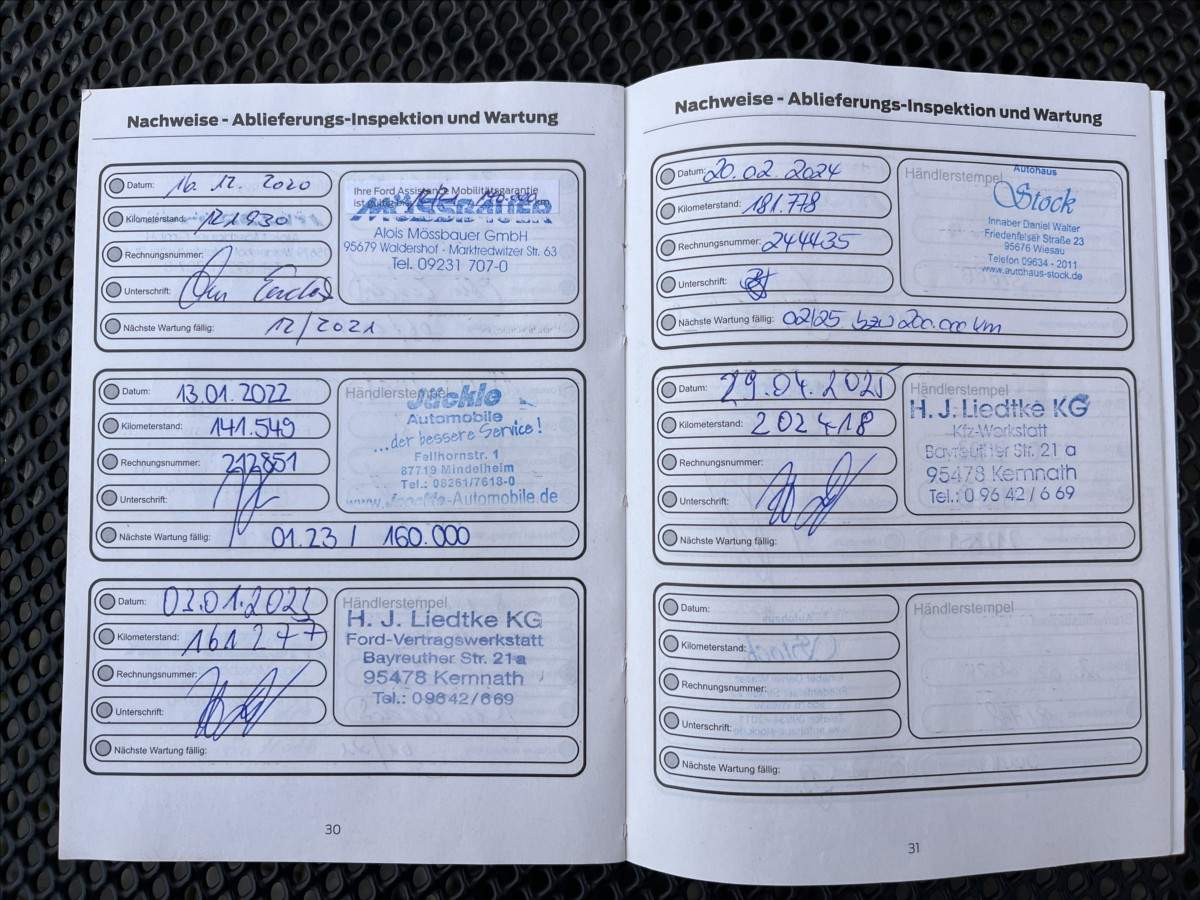 Nachweise - Ablieferungs-Inspektion und Wartung
Datum: 16.12.2020
Kilometerstand: 121.930
Rechnungsnummer:
Unterschrift:
Nächste Wartung fällig: 12/2021
Ihre Ford Assistance Mobilitätsgarantie
ist gültig bis km
MÖSSBAUER
Alois Mössbauer GmbH
95679 Waldershof - Marktredwitzer Str. 63
Tel. 09231 707-0
Datum: 13.01.2022
Kilometerstand: 141.549
Rechnungsnummer: 212851
Unterschrift:
Nächste Wartung fällig: 01.23 / 160.000
Händlerstempel
Jäckle
Automobile
...der bessere Service!
Fellhornstr. 1
87719 Mindelheim
Tel.: 08261/7618-0
www.Jaeckle-Automobile.de
Datum: 03.01.2023
Kilometerstand: 161277
Rechnungsnummer:
Unterschrift:
Nächste Wartung fällig:
Händlerstempel
H. J. Liedtke KG
Ford-Vertragswerkstatt
Bayreuther Str. 21 a
95478 Kemnath
Tel.: 09642/669
30
Nachweise - Ablieferungs-Inspektion und Wartung
Datum: 20.02.2024
Kilometerstand: 181.778
Rechnungsnummer: 244435
Unterschrift:
Nächste Wartung fällig: 02/25 bzw 200.000 km
Händlerstempel
Autohaus
Stock
Inhaber Daniel Walter
Friedenfelser Straße 23
95676 Wiesau
Telefon 09634 - 2011
www.autohaus-stock.de
Datum: 29.04.2025
Kilometerstand: 202418
Rechnungsnummer:
Unterschrift:
Nächste Wartung fällig:
Händlerstempel
H. J. Liedtke KG
Kfz-Werkstatt
Bayreuther Str. 21 a
95478 Kemnath
Tel.: 0 96 42 / 6 69
Datum:
Kilometerstand:
Rechnungsnummer:
Unterschrift:
Nächste Wartung fällig:
Händlerstempel
31